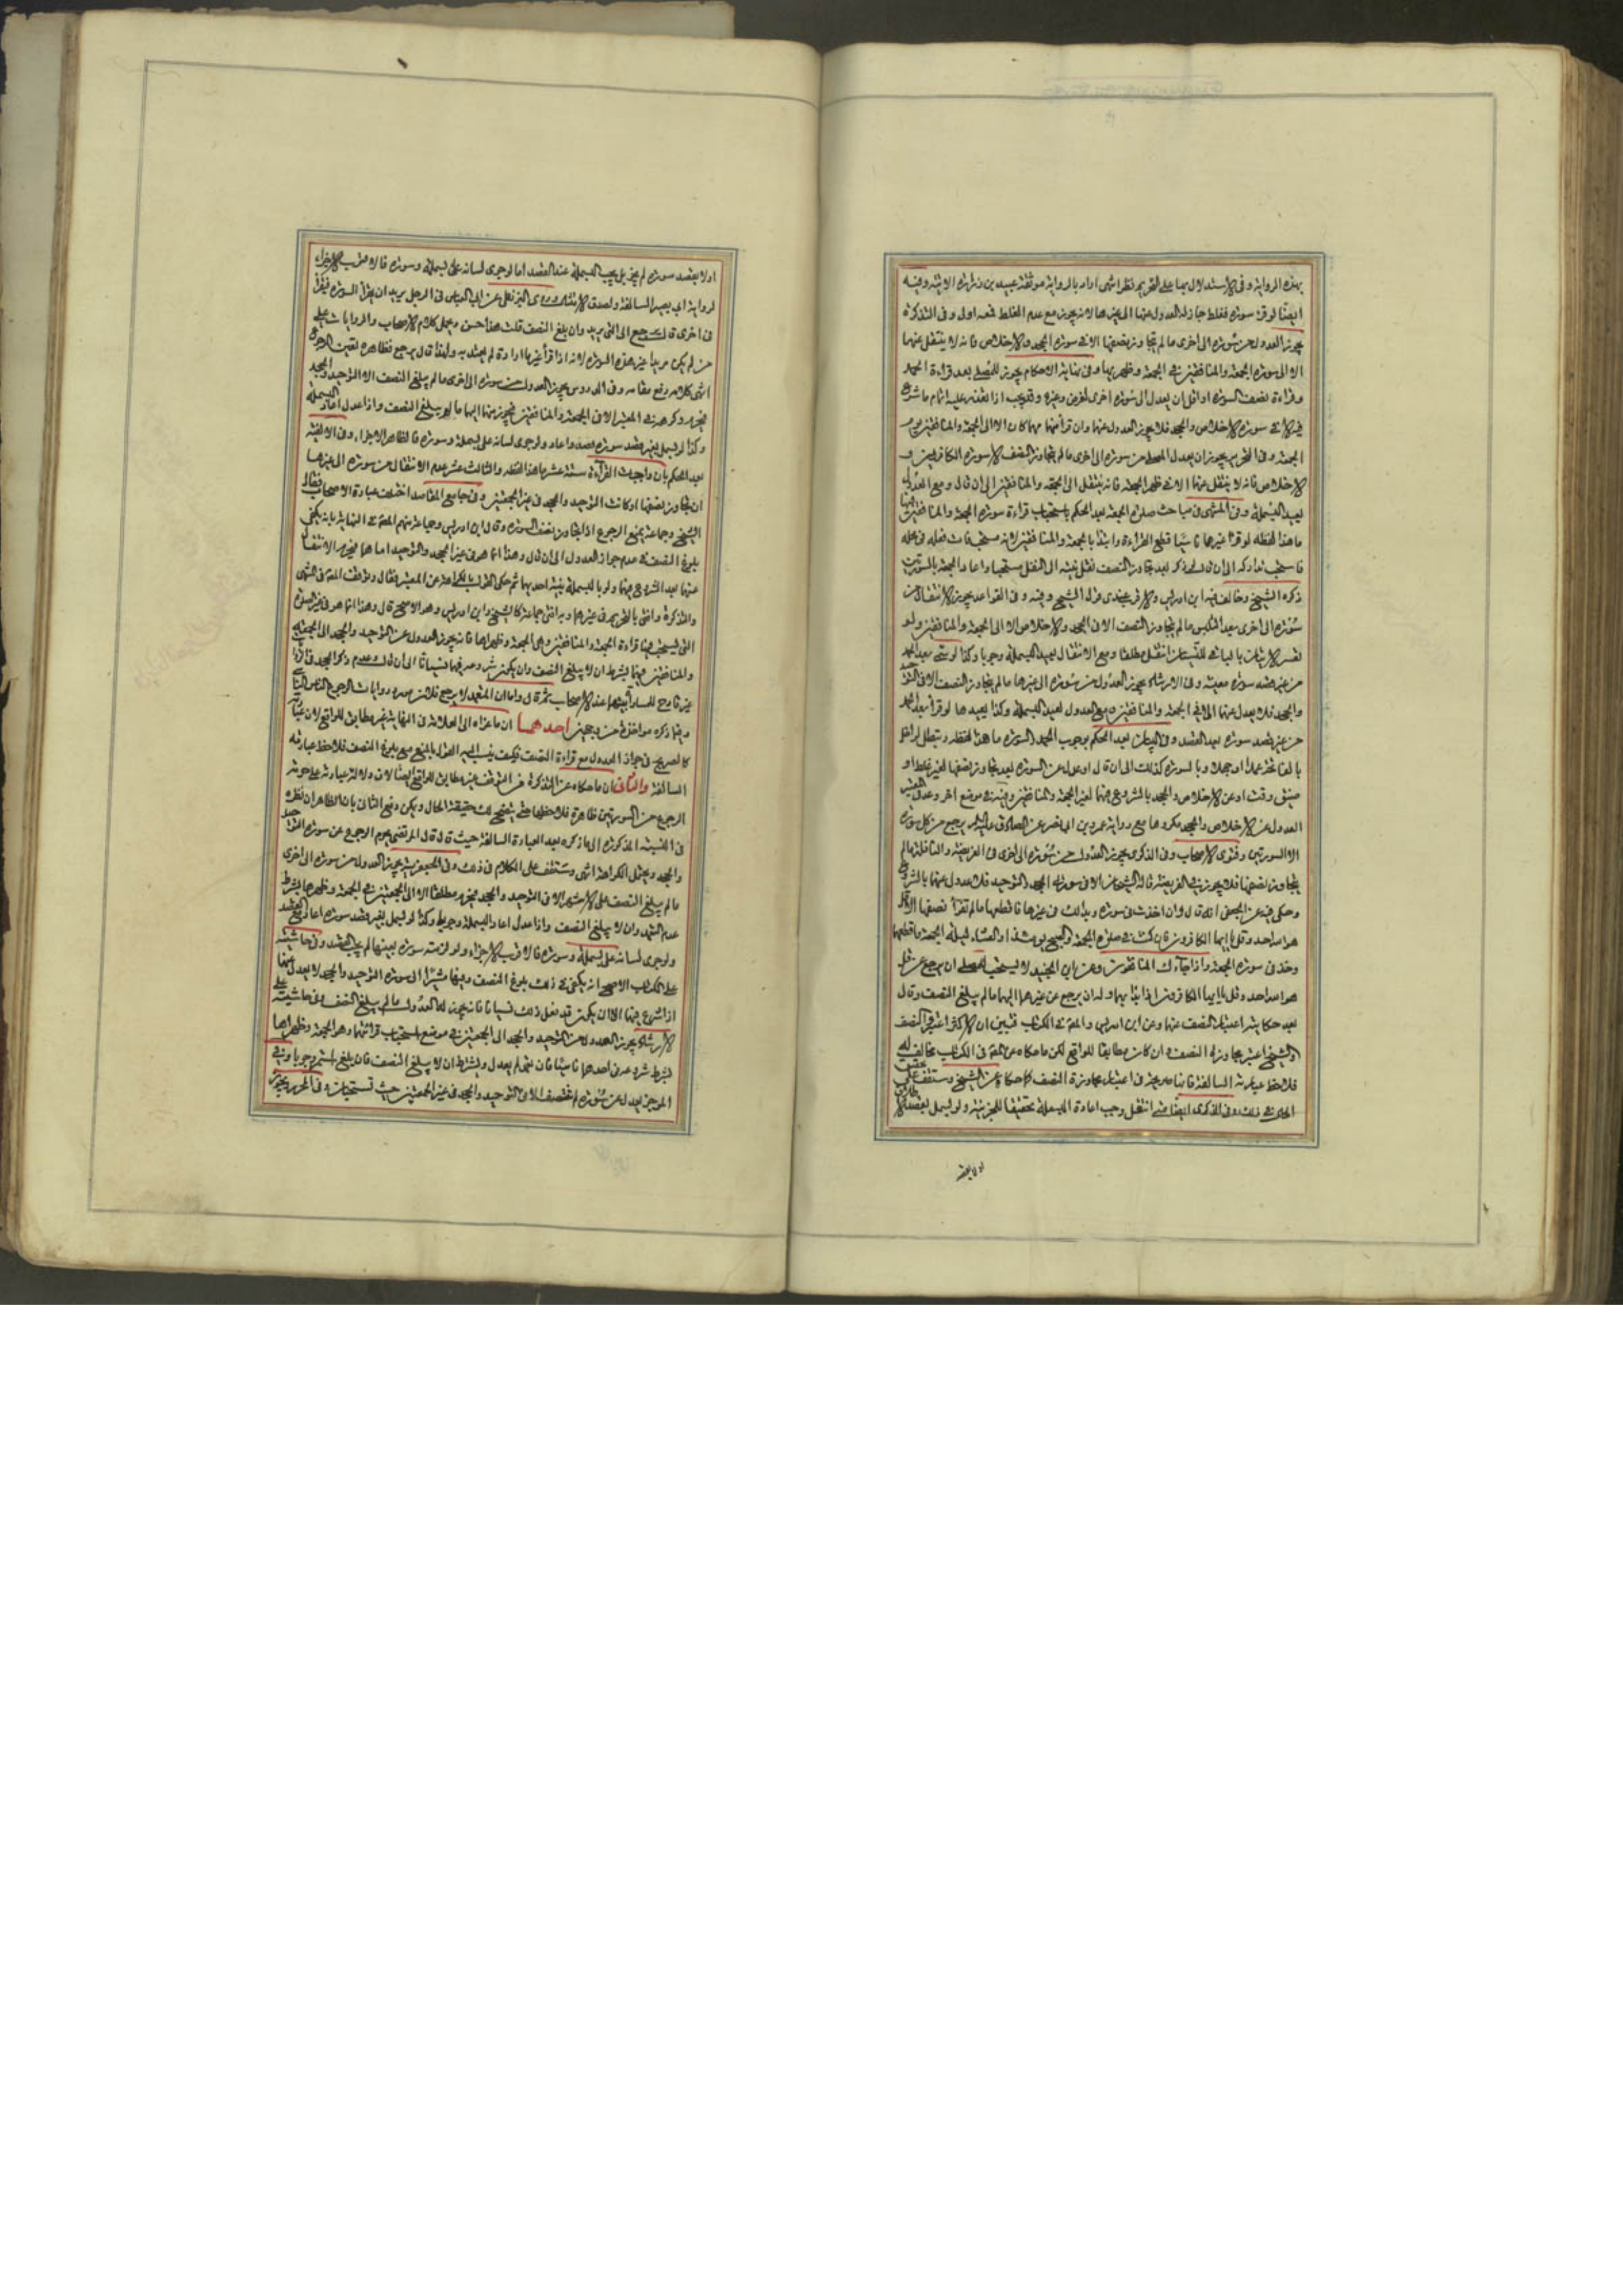 بهذه الرواية وفى الاستدلال بها على التحريم نظر انتهى اراد بالرواية موثقة عبيد بن زرارة الاتية وفيه
ايضا لو قرء سورة فغلط جاز له العدول عنها الى غيرها لانه يجوز مع عدم الغلط فمعه اولى وفى التذكرة
يجوز العدول من سورة الى اخرى ما لم يتجاوز نصفها الا فى سورة الجحد والاخلاص فانه لا ينتقل عنهما
الا الى سورة الجمعة والمنافقين فى الجمعة وظهر يها وفى نهاية الاحكام يجوز للمصلى بعد قراءة الحمد
وقراءة نصف السورة او اقل ان يعدل الى سورة اخرى لغرض وغيره وقد يجب اذا
فيه الا فى سورة الاخلاص والجحد فلا يجوز العدول عنهما وان قرأ منهما مهما كان الا الى الجمعة والمنافقين يوم
الجمعة وفى التحرير يجوز ان يعدل المصلى من سورة الى اخرى ما لم يتجاوز النصف الا سورة الكافرين و
الاخلاص فانه لا ينتقل عنهما الا فى ظهر الجمعة فانه ينتقل الى الجمعة والمنافقين الى ان قال ومع العدول
يعيد البسملة وفى المنتهى فى مباحث صلوة الجمعة بعد الحكم باستحباب قراءة سورة الجمعة والمنافقين فيها
ما هذا لفظه لو قرأ غيرها ناسيا قطع القراءة وابتدأ بالجمعة والمنافقين لانه مستحب فات فعله فى محله
فاستحب تداركه الى ان قال لو ذكر بعد تجاوز النصف نقل نيته الى النفل مستحبا واعاد الجمعة بالسورتين
ذكره الشيخ وخالف فيه ابن ادريس والاقرب عندى قول الشيخ وفيه وفى القواعد يجوز الانتقال من
سورة الى اخرى بعد التلبس ما لم يتجاوز النصف الا فى الجحد والاخلاص الا الى الجمعة والمنافقين ولو
تعسر الاتيان بالباقى للنسيان انتقل مطلقا ومع الانتقال يعيد البسملة وجوبا وكذا لو سمى بعد الحمد
من غير قصد سورة معينة وفى الارشاد يجوز العدول من سورة الى غيرها ما لم يتجاوز النصف الا فى التوحيد
والجحد فلا يعدل عنهما الا الى الجمعة والمنافقين ومع العدول يعيد البسملة وكذا يعيدها لو قرأ بعد الحمد
من غير قصد سورة بعد القصد وفى البيان بعد الحكم بوجوب الحمد والسورة ما هذا لفظه وتبطل لو اخل
بالفاتحة عمدا او جهلا وبالسورة كذلك الى ان قال او عدل عن السورة بعد تجاوز نصفها لغير غلط او
ضيق وقت او عن الاخلاص والجحد بالشروع فيهما لغير الجمعة والمنافقين وفيه فى موضع اخر وعد فى المعتبر
العدول عن الاخلاص والجحد مكروها مع رواية عمرو بن ابى نصر عن الصادق عليه السلام يرجع من كل سورة
الا السورتين وفتوى الاصحاب وفى الذكرى يجوز العدول من سورة الى اخرى فى الفريضة والنافلة ما لم
يتجاوز نصفها فلا يجوز فى الفريضة قاله الشيخان الا فى سورتى الجحد والتوحيد فلا عدول عنهما بالشروع
وحكى فيه عن الجعفى انه قال وان اخذت فى سورة وبدا لك فى غيرها فاقطعها ما لم تقرأ نصفها الا قل
هو الله احد وقل يا ايها الكافرون فان كنت فى صلوة الجمعة والصبح يومئذ او العشاء ليلة الجمعة فاقطعها
وخذ فى سورة الجمعة واذا جاءك المنافقون وعن ابن الجنيد لا يستحب للمصلى ان يرجع عن قل
هو الله احد وقل يا ايها الكافرون اذا ابتدأ بهما وله ان يرجع عن غيرهما اليهما ما لم يبلغ النصف وقال
بعد حكاية اعتبار النصف عنهما وعن ابن ادريس والمة فى الكتاب فتبين ان الاكثر اعتبروا النصف
والشيخ اعتبر مجاوزة النصف وان كان مطابقا للواقع لكن ما حكاه عن المة فى الكتاب مخالف له
فلاحظ عبارته السالفة فانها صريحة فى اعتبار مجاوزة النصف كما حكاه عن الشيخ وستقف على تحقيق
الحال فى ذلك وفى الذكرى ايضا متى انتقل وجب اعادة البسملة تحقيقا للجزئية ولو بسمل بقصد الا
اولا بقصد
اولا بقصد سورة لم يجز بل يجب البسملة عند القصد اما لو جرى لسانه على بسملة وسورة فالاقرب الاجزاء
لرواية ابى بصير السالفة ولصدق الامتثال وروى البزنطى عن ابى العباس فى الرجل يريد ان يقرأ السورة فيقرأ
فى اخرى قال يرجع الى التى يريد وان بلغ النصف قلت هذا حسن ويحمل كلام الاصحاب والروايات على
من لم يكن مريدا غير هذه السورة لانه اذا قرأ غير ما اراده لم يعتد به ولهذا قال يرجع فظاهره تعين الرجوع
انتهى كلامه رفع مقامه وفى الدروس يجوز العدول من سورة الى اخرى ما لم يبلغ النصف الا التوحيد والجحد
فيحرم وكره فى المعتبر الا فى الجمعة والمنافقين فيجوز منهما اليهما ما لم يبلغ النصف واذا عدل اعاد البسملة
وكذا لو بسمل بغير قصد سورة قصد واعاد ولو جرى لسانه على بسملة وسورة فالظاهر الاجزاء وفى الالفية
بعد الحكم بان واجبات القراءة ستة عشر ما هذا لفظه والثالث عشر عدم الانتقال من سورة الى غيرها
ان تجاوز نصفها او كانت التوحيد والجحد فى غير الجمعتين وفى جامع المقاصد اختلف عبارة الاصحاب فقال
الشيخ وجماعة يمنع الرجوع اذا تجاوز نصف السورة وقال ابن ادريس وجماعة منهم المة فى النهاية بانه يكفى
بلوغ النصف فى عدم جواز العدول الى ان قال وهذا انما هو فى غير الجحد والتوحيد اما هما فيحرم الانتقال
عنهما بعد الشروع فيهما ولو بالبسملة بنية احديهما ثم حكى القول بالكراهة عن المعتبر فقال وتوقف المة فى المنتهى
والتذكرة وافتى بالتحريم فى غيرهما وبه افتى جماعة كالشيخ وابن ادريس وهو الاصح قال وهذا انما هو فى غير صلوة
التى يستحب فيها قراءة الجمعة والمنافقين وهى الجمعة وظهرها فانه يجوز العدول عن التوحيد والجحد الى الجمعة
والمنافقين فيهما بشرط ان لا يبلغ النصف وان يكون شروعه فيهما نسيانا الى ان قال وعدم ذكر الجحد فى
غير قادح للمساواة بينهما عند الاصحاب ثم قال واما ان المتعمد لا يرجع فلان مورد روايات الرجوع الناسى
وفيما ذكره مواخذة من وجهين احدهما ان ما عزاه الى العلامة فى النهاية غير مطابق للواقع لان عبارته
كالصريح فى جواز العدول مع قراءة النصف فكيف ينسب اليه القول بالمنع مع بلوغ النصف فلاحظ عبارته
السالفة والثانى ان ما حكاه عن التذكرة من التوقف غير مطابق للواقع ايضا لان دلالة عبارته على حرمة
الرجوع من السورتين ظاهرة فلاحظها حتى يتضح لك حقيقة الحال ويمكن دفع الثانى بان الظاهر ان نظره
فى النسبة المذكورة الى ما ذكره بعد العبارة السالفة حيث قال قال المرتضى يحرم الرجوع عن سورة التوحيد
والجحد ويحتمل الكراهة انتهى وستقف على الكلام فى ذلك وفى الجعفرية يجوز العدول من سورة الى اخرى
ما لم يبلغ النصف على الاشهر الا فى التوحيد والجحد فيحرم مطلقا الا الى الجمعتين فى الجمعة وظهرها بشرط
عدم التعمد وان لا يبلغ النصف واذا عدل اعاد البسملة وجوبا وكذا لو بسمل بغير قصد سورة اعاد مع القصد
ولو جرى لسانه على بسملة وسورة فالاقرب الاجزاء ولو لزمته سورة بعينها لم يجب القصد وفى حاشيته
على الكتاب الاصح انه يكفى فى ذلك بلوغ النصف وفيها مشيرا الى سورة التوحيد والجحد لا يعدل عنهما
اذا شرع فيهما الا ان يكون قد فعل ذلك نسيانا فانه يجوز له العدول ما لم يبلغ النصف وفى حاشيته على
الارشاد يجوز العدول من التوحيد والجحد الى الجمعتين فى موضع استحباب قرائتهما وهو الجمعة وظهرها
بشرط شروعه فى احدهما ناسيا فان تعمد لم يعدل وبشرط ان لا يبلغ النصف فان بلغ استمر وجوبا وفى
الموجز يعدل عن سورة لم تنتصف الا فى التوحيد والجحد فى غير الجمعتين حيث تستحبان وفى المحرر يجوز